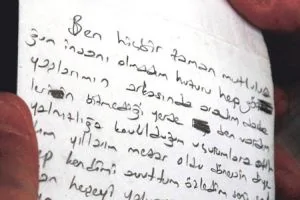 Ben hiçbir zaman mutluluğ
ğun insanı olmadım huzuru hep göz
yaşlarımın arkasında aradım
lerin bilmediği yerde den vardım
yalnızlığa kovulduğum uçurumlara
tüm yıllarım mezar oldu dönersin diye
hep kendimi avuttum özledim seni
her şeyi